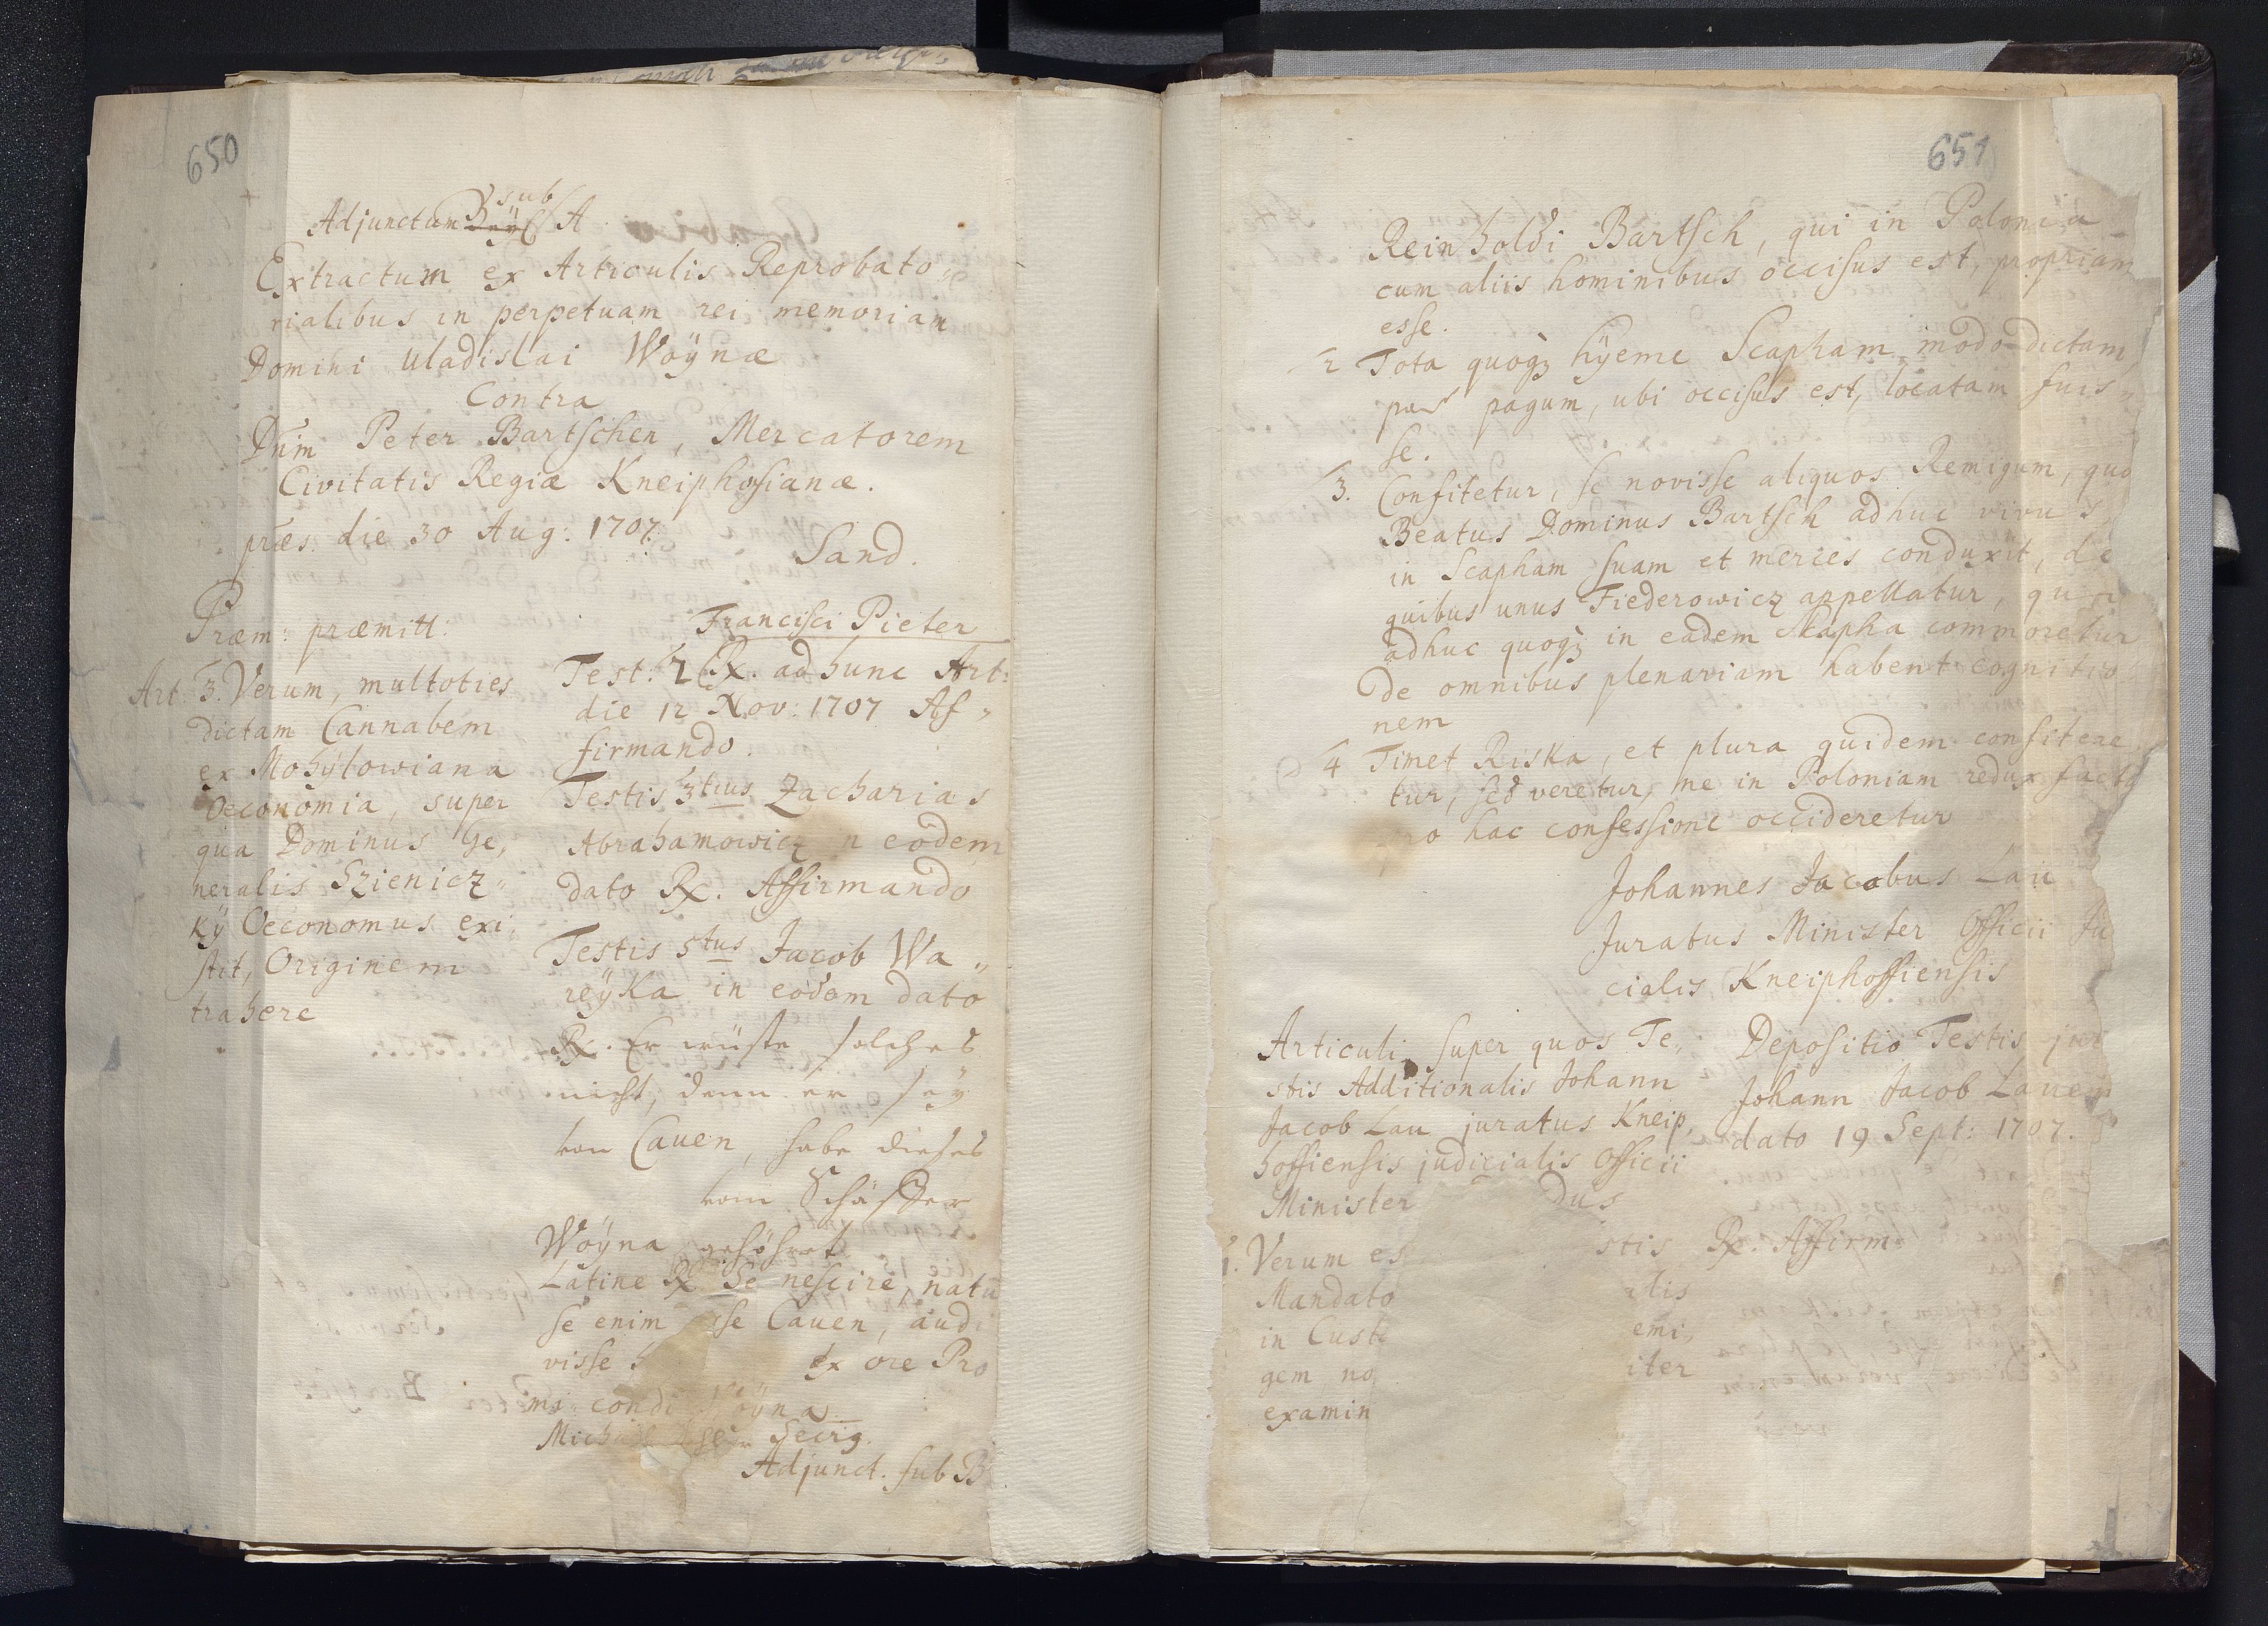 650
Adjunctum sub A
Extractum ex Articulis Reprobato„
rialibus in perpetuam rei memoriam
Domini Uladislai Woÿnæ
Contra
Dnm Peter Bartschen, Mercatorem
Civitatis Regiæ Kneiphosianæ.
præs. die 30 Aug: 1707.
Sand.
Præm: præmitt:
Art. 3. Verum, multoties
dictam Cannabem
ex Mohÿlowiana
Oeconomia, super
qua Dominus Ge,
neralis Szienicz„
kÿ Oeconomus exi,
stit, Originem
trahere
Francisci Pieter
Test: 2 Rx. ad hunc Art:
die 12 Nov: 1707 Af„
firmando.
Testis 3tius Zacharias
Abrahamowicz n eodem
dato Rx. Affirmando
Testis 5tus Jacob Wa„
reÿka in eodem dato
Rx. Er wüste solches
nicht, denn er seÿ
von Cauen, habe dieses
vom Schaffer
Woÿna gehöret
Latine Rx Se nescire, natu
se enim sse Cauen, audi
visse h ex ore Pro
mi condi Woÿna
Michael Georg.
Adjunct. sub B
651
Reinholdi Bartsch, qui in Polonia
cum aliis hominibus occisus est, propriam
esse.
2 Tota quoqz hÿeme Scapham modo dictam
pagum, ubi occisus est, locatam fuis„
se.
3. Confitetur, se novisse aliquos Remigum, quo
Beatus Dominus Bartsch adhuc vivus
in Scapham suam et merces conduxit, de
quibus unus Fiederowicz appellatur, qui
adhuc quoqz in eadem Skapha commoretur
de omnibus plenariam habent cognitio
nem
4 Timet Riska, et plura quidem confitere
tur, sed veretur, ne in Poloniam redux facto
o hac confessione occideretur
Johannes Jacobus Lau
Juratus Minister Officii Ju
cialis Kneiphoffiensis
Articuli super quos Te„
stis Additionalis Johann
Jacob Lau juratus Kneip,
hoffiensis judicialis Officii
Minister dus
1. Verum es stis
Mandato alis
in Cust emi,
gem no iter
examin
Depositio Testis jur
Johann Jacob Lauen
dato 19 Sept: 1707.
Rx. Affirm